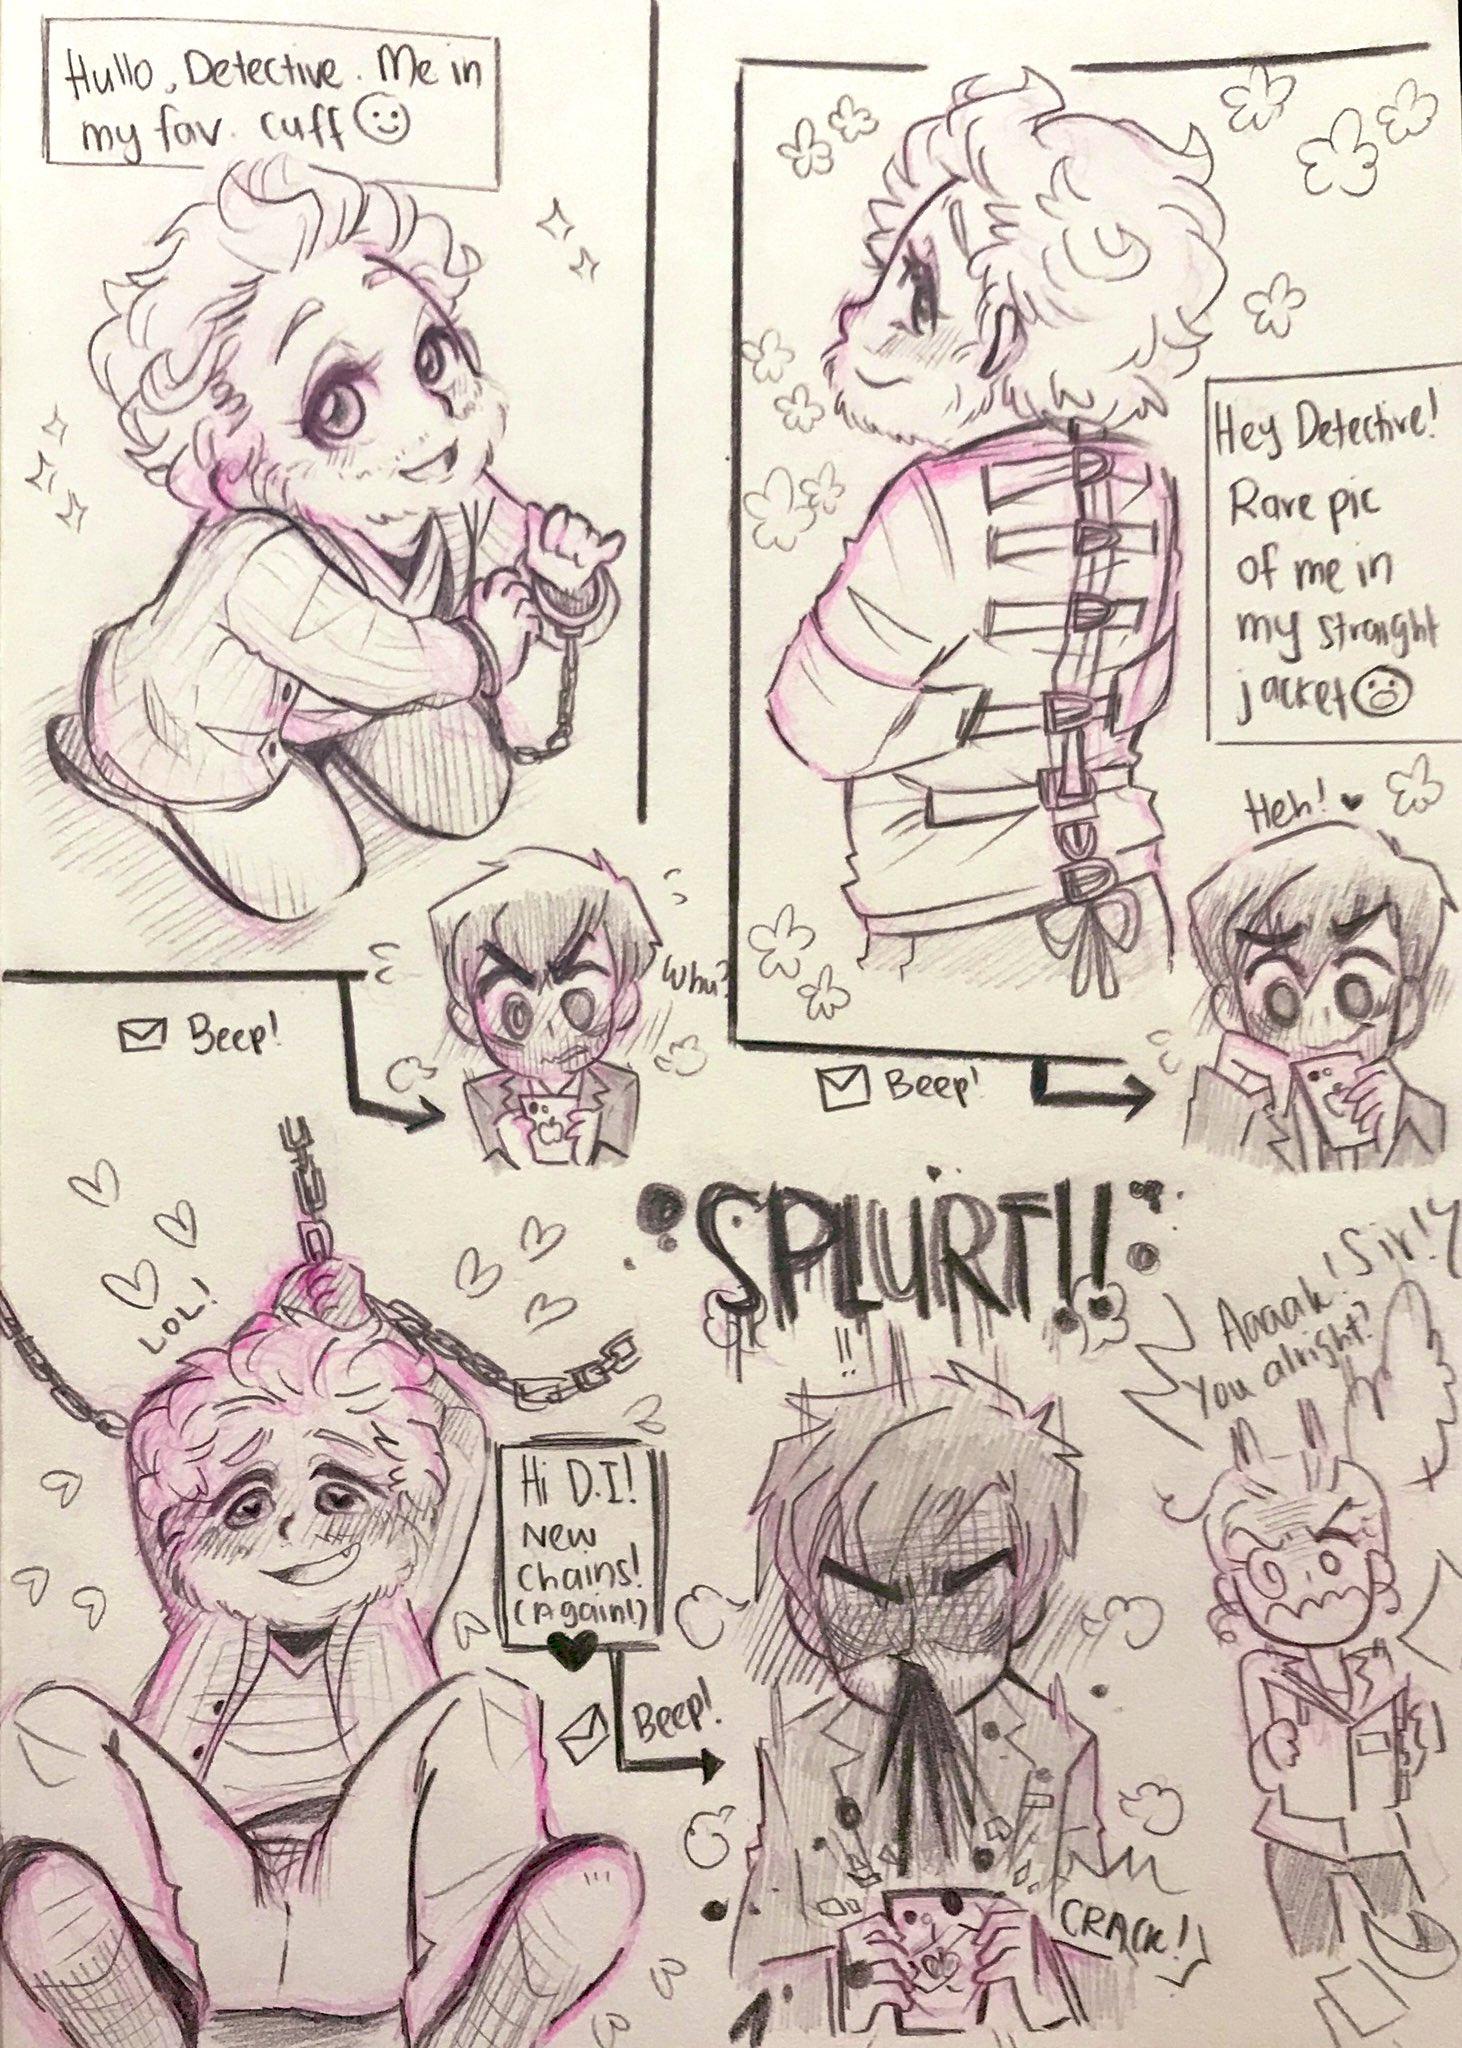 Hullo, Detective. Me in
my fav. cuff
Whu?
Beep!
Hey Detective!
Rare pic
of me in
my straight
jacket
Heh!
Beep!
LOL!
Hi D.I!
New
Chains!
(Again!)
Beep!
SPLURT!!
!!
CRACK!
Aaaak! Sir!
You alright?